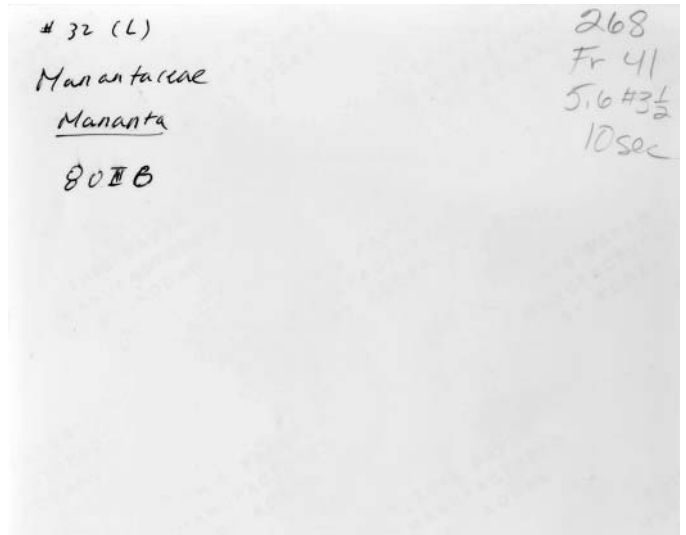 # 32 (L)
Marantaceae
Maranta
80 II B
268
Fr 41
5.6 #3½
10 sec